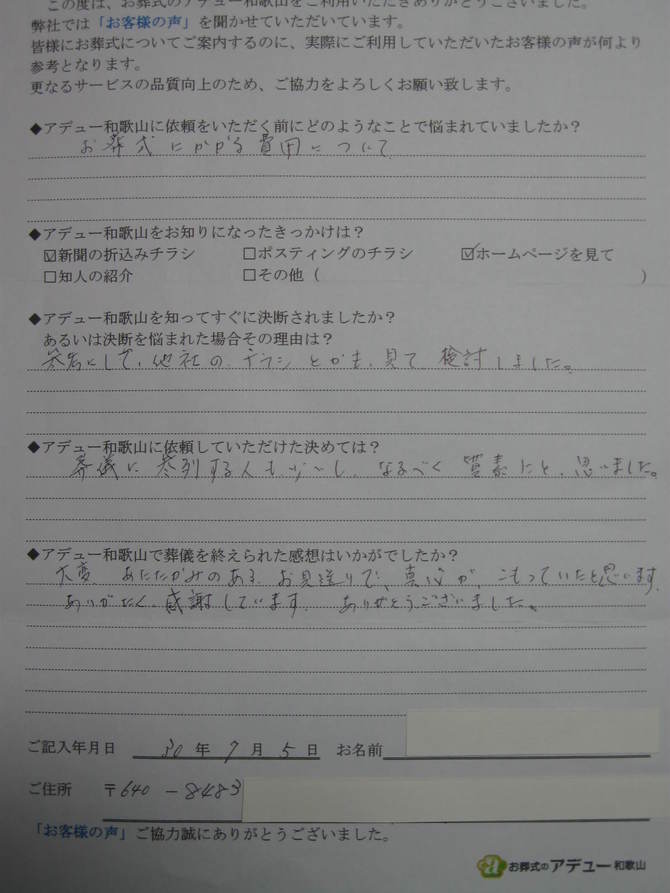 この度は、お葬式のアデュー和歌山をご利用いただきありがとうございました。
弊社では「お客様の声」を聞かせていただいています。
皆様にお葬式についてご案内するのに、実際にご利用していただいたお客様の声が何より
参考となります。
更なるサービスの品質向上のため、ご協力をよろしくお願い致します。
◆アデュー和歌山に依頼をいただく前にどのようなことで悩まれていましたか？
お葬式にかかる費用について
◆アデュー和歌山をお知りになったきっかけは？
☑新聞の折込みチラシ ☐ポスティングのチラシ ☑ホームページを見て
☐知人の紹介 ☐その他（ ）
◆アデュー和歌山を知ってすぐに決断されましたか？
あるいは決断を悩まれた場合その理由は？
して、他社の、チラシとかも、見て、検討しました。
◆アデュー和歌山に依頼していただけた決めては？
葬儀に参列する人も少~し、なるべく質素にと、思いました。
◆アデュー和歌山で葬儀を終えられた感想はいかがでしたか？
大変 あたたかみのある、お見送りで、真心が、こもっていたと思います。
ありがたく、感謝しています。 ありがとうございました。
ご記入年月日 30年7月5日 お名前
ご住所 〒640-8483
「お客様の声」ご協力誠にありがとうございました。
お葬式のアデュー和歌山